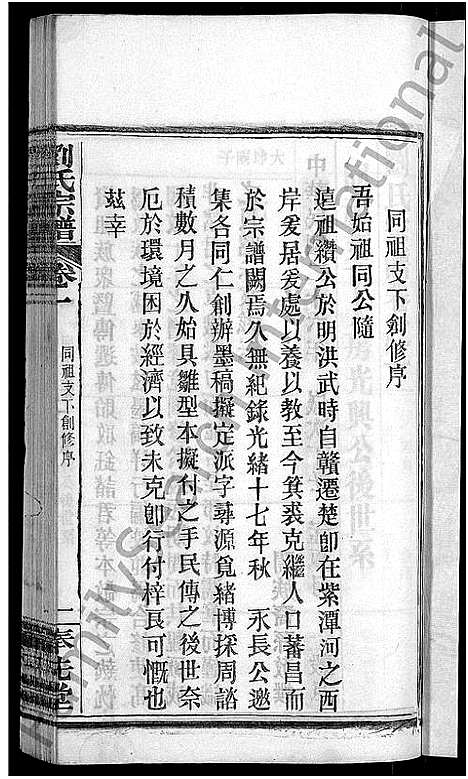 同祖支下創修序
吾始祖同公隨
遠祖纘公於明洪武時自贛遷楚卽在紫潭河之西
岸爰居爰處以養以教至今箕裘克繼人口蕃昌而
於宗譜闕焉久無紀錄光緒十七年秋 永長公邀
集各同仁創辦墨稿擬定派字尋源覓緒博採周諮
積數月之久始具雛型本擬付之手民傳之後世奈
厄於環境困於經濟以致未克卽行付梓良可慨也
玆幸
劉氏宗譜
卷一
同祖支下創修序
一
奉先堂